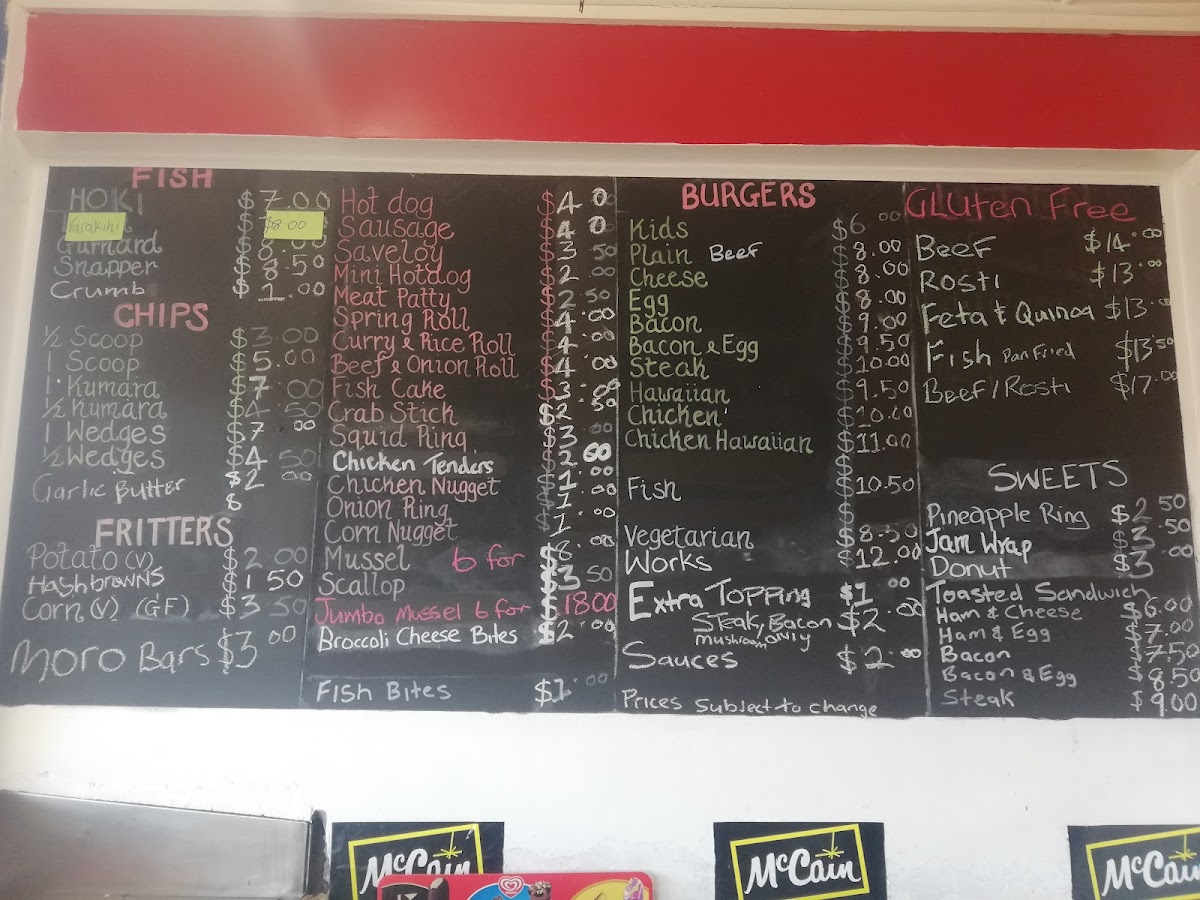 FISH
HOKI $7.00
Tarakihi $8.00
Gurnard $8.00
Snapper $8.50
Crumb $1.00
CHIPS
½ Scoop $3.00
1 Scoop $5.00
1 Kumara $7.00
½ Kumara $4.50
1 Wedges $7.00
½ Wedges $4.50
Garlic Butter $2.00
$
FRITTERS
Potato (V) $2.00
Hashbrowns $1.50
Corn (V) (GF) $3.50
Moro Bars $3.00
Hot dog $4.0
Sausage $4.0
Saveloy $3.50
Mini Hotdog $2.00
Meat Patty $2.50
Spring Roll $4.00
Curry & Rice Roll $4.00
Beef & Onion Roll $4.00
Fish Cake $3.00
Crab Stick $2.50
Squid Ring $3.00
Chicken Tenders $2.00
Chicken Nugget $1.00
Onion Ring $1.00
Corn Nugget $1.00
Mussel 6 for $8.00
Scallop $3.50
Jumbo Mussel 6 for $18.00
Broccoli Cheese Bites $2.00
Fish Bites $1.00
BURGERS
Kids $6.00
Plain Beef $8.00
Cheese $8.00
Egg $8.00
Bacon $9.00
Bacon & Egg $9.50
Steak $10.00
Hawaiian $9.50
Chicken $10.00
Chicken Hawaiian $11.00
Fish $10.50
Vegetarian $8.50
Works $12.00
Extra Topping $1.00
Steak, Bacon $2.00
Mushroom only
Sauces $2.00
Prices subject to change
Gluten Free
Beef $14.00
Rosti $13.00
Feta & Quinoa $13.00
Fish Pan Fried $13.50
Beef/Rosti $17.00
SWEETS
Pineapple Ring $2.50
Jam Wrap $3.50
Donut $3.00
Toasted Sandwich
Ham & Cheese $6.00
Ham & Egg $7.00
Bacon $7.50
Bacon & Egg $8.50
Steak $9.00
McCain
McCain
McCain